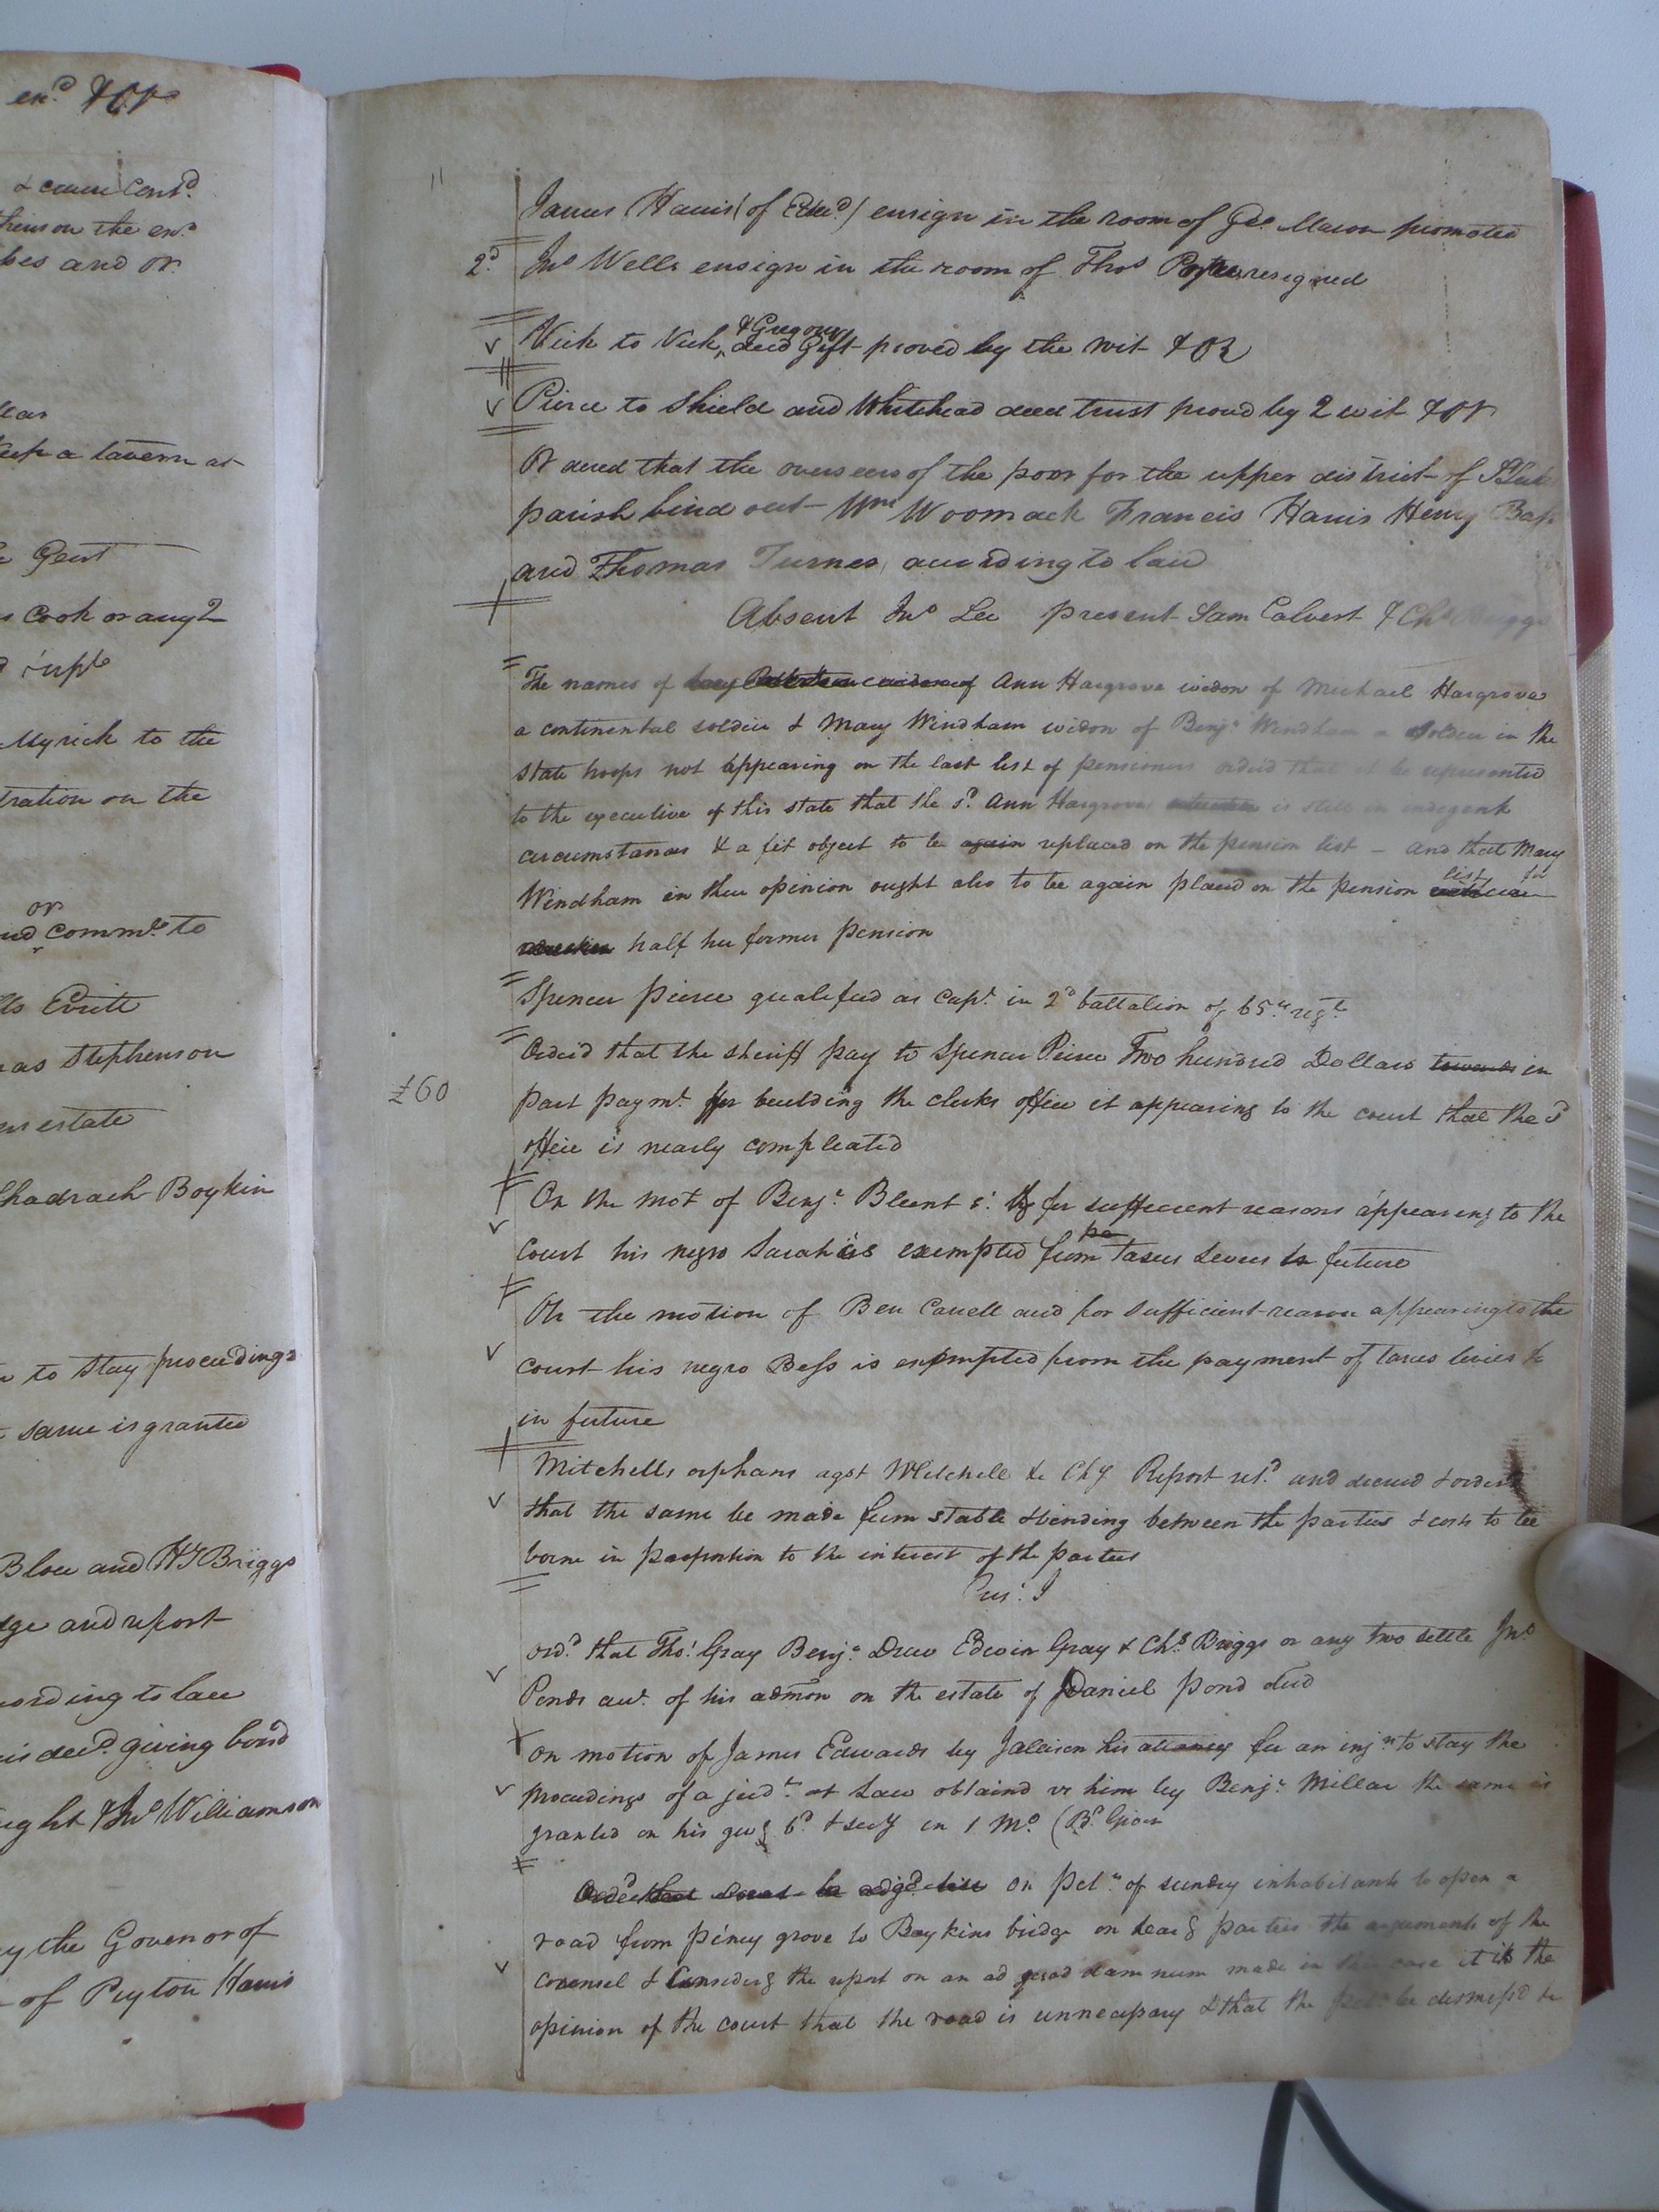 exd & Or
& cause Contd
hinson the exr
bes and or
llar
keep a tavern at
Gent
s Cook or any 2
Myrick to the
tration on the
or
comme to
Evritt
as Stephenson
estate
Shadrach Boykin
to stay proceedings
same is granted
Blow and HJ Briggs
dge and report
cording to law
decd giving bond
ght & Jno Williamson
y the Govenor of
of Peyton Harris
11
James Harris (of Edwd) ensign in the room of Geo. Mason promoted
2d Jno Wells ensign in the room of Thos Porter resigned
& Gregory
Vick to Vick, deed Gift proved by the wit & OR
Pierce to Shield and Whitehead deed trust provd by 2 wit & Or
Ordered that the overseers of the poor for the upper district of
parish bind out Wm Woomack Francis Harris Henry
and Thomas Turner according to law
Absent Jno Lee present Sam Calvert & Chs Briggs
The names of Ann Hargrove widow of Michael Hargrove
a continental soldier & Mary Windham widow of Benja Windham a soldier in the
state troops not appearing on the last list of pensioners orderd that it be represented
to the executive of this state that the sd Ann Hargrove is still in indegent
circumstances & a fit object to be again replaced on the pension list – and that Mary
list for
Windham in their opinion ought also to be again placed on the pension
half her former pension
Spencer Peirce qualified as Capt. in 2d battalion of 65th regt
Orderd that the sheriff pay to Spencer Peirce Two hundred Dollars towards in
£60
part paymt for building the clerks office it appearing to the court that the sd
office is nearly compleated
On the mot of Benja Blunt & for sufficient reasons appearing to the
po
Court his negro Sarah is exempted from taxes Levies in future
On the motion of Ben Carrell and for sufficient reason appearing to the
court his negro Bess is exempted from the payment of taxes levies &c
in future
Mitchells orphans agst Mitchell &c Chy Report retd and decreed & orderd
that the same be made firm stable & binding between the parties & costs to be
borne in proportion to the interest of the parties
ordd that Thos Gray Benja Drew Edwin Gray & Chs Briggs or any two settle Jno
Ponds acct. of his admon on the estate of Daniel Pond decd
On motion of James Edwards by his attorney for an injn to stay the
proceedings of a judt at Law obtaind vs him by Benja Millar the same is
granted on his givg bd & secy in 1 Mo
Orderd that Court be adjd till on petn of sundry inhabitants to open a
road from piney grove to Boykins bridge on hearg parties the arguments of the
Counsel & Considerg the report on an ad quod damnum made in this case it is the
opinion of the court that the road is unnecessary & that the be dismissd &c